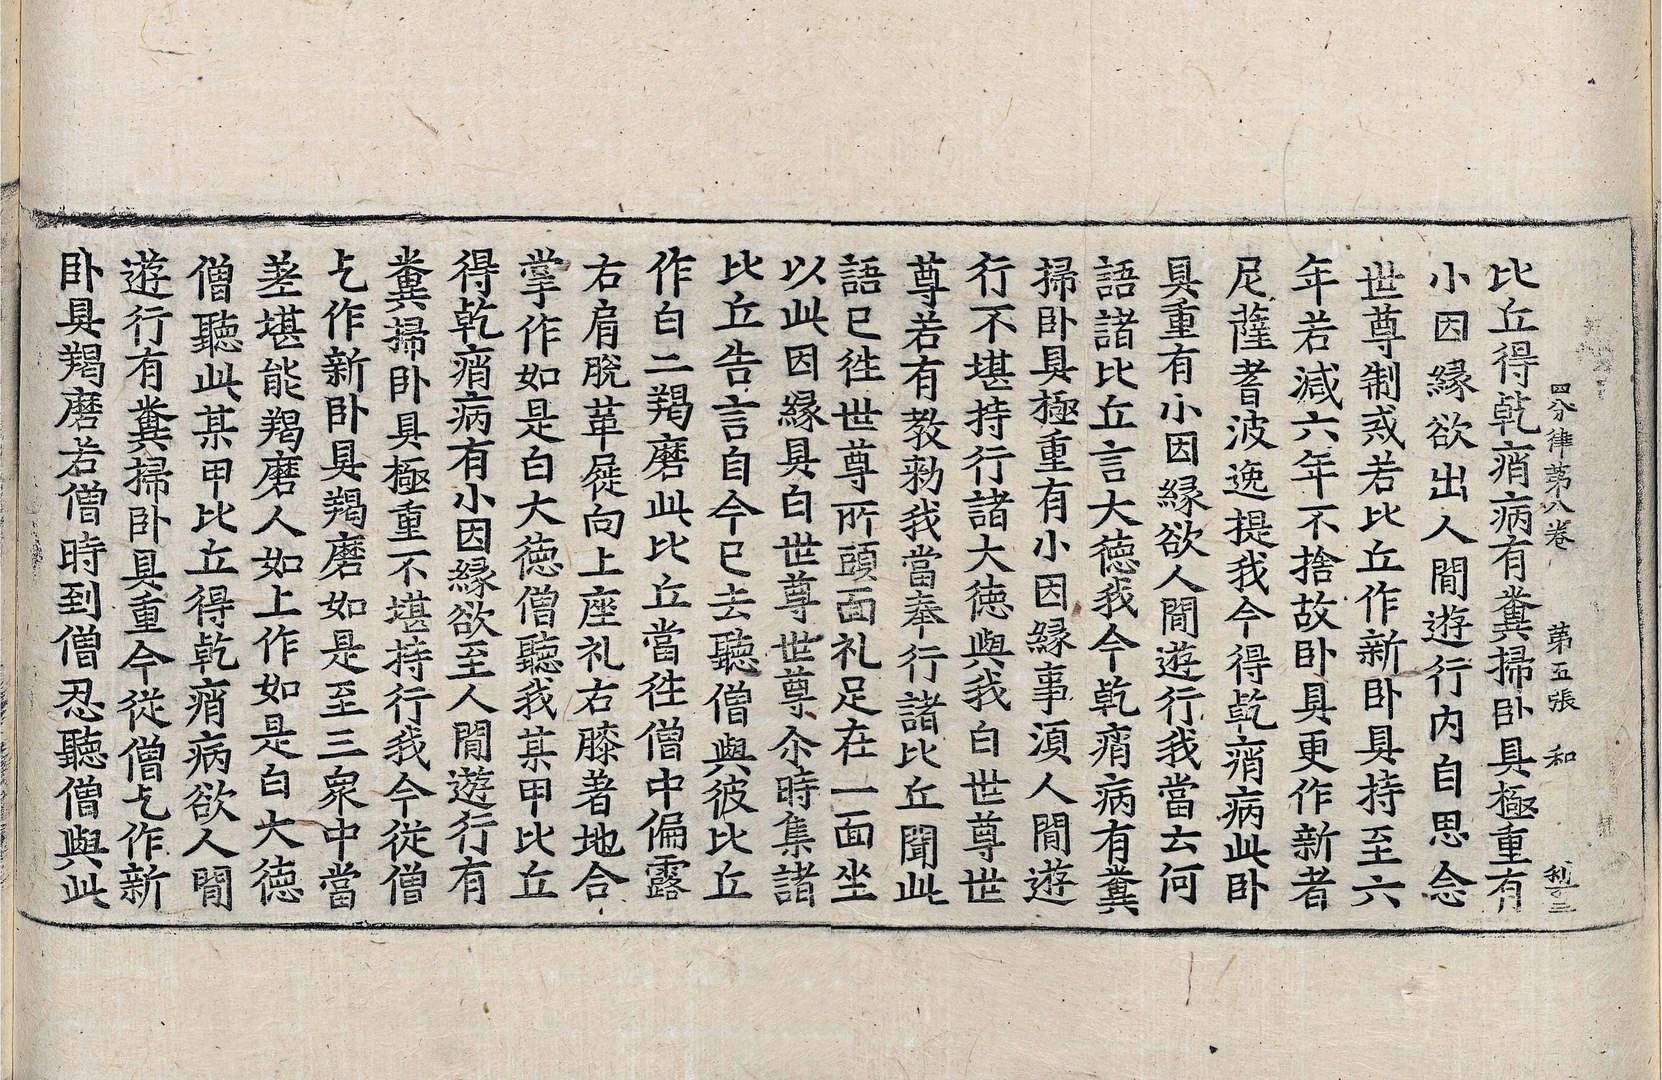 四分律第八卷 第五張 和
比丘得乾痟病有糞掃卧具極重有
小因緣欲出人間遊行内自思念
世尊制戒若比丘作新卧具持至六
年若減六年不捨故卧具更作新者
尼薩耆波逸提我今得乾痟病此卧
具重有小因緣欲人間遊行我當云何
語諸比丘言大德我今乾痟病有糞
掃卧具極重有小因緣事湏人間遊
行不堪持行諸大德與我白世尊世
尊若有教勑我當奉行諸比丘聞此
語已徃世尊所頭面礼足在一面坐
以此因緣具白世尊世尊尒時集諸
比丘告言自今已去聽僧與彼比丘
作白二羯磨此比丘當徃僧中偏露
右肩脫革屣向上座礼右膝著地合
掌作如是白大德僧聽我某甲比丘
得乾痟病有小因緣欲至人間遊行有
糞掃卧具極重不堪持行我今從僧
乞作新卧具羯磨如是至三衆中當
差堪能羯磨人如上作如是白大德
僧聽此某甲比丘得乾痟病欲人間
遊行有糞掃卧具重今從僧乞作新
卧具羯磨若僧時到僧忍聽僧與此